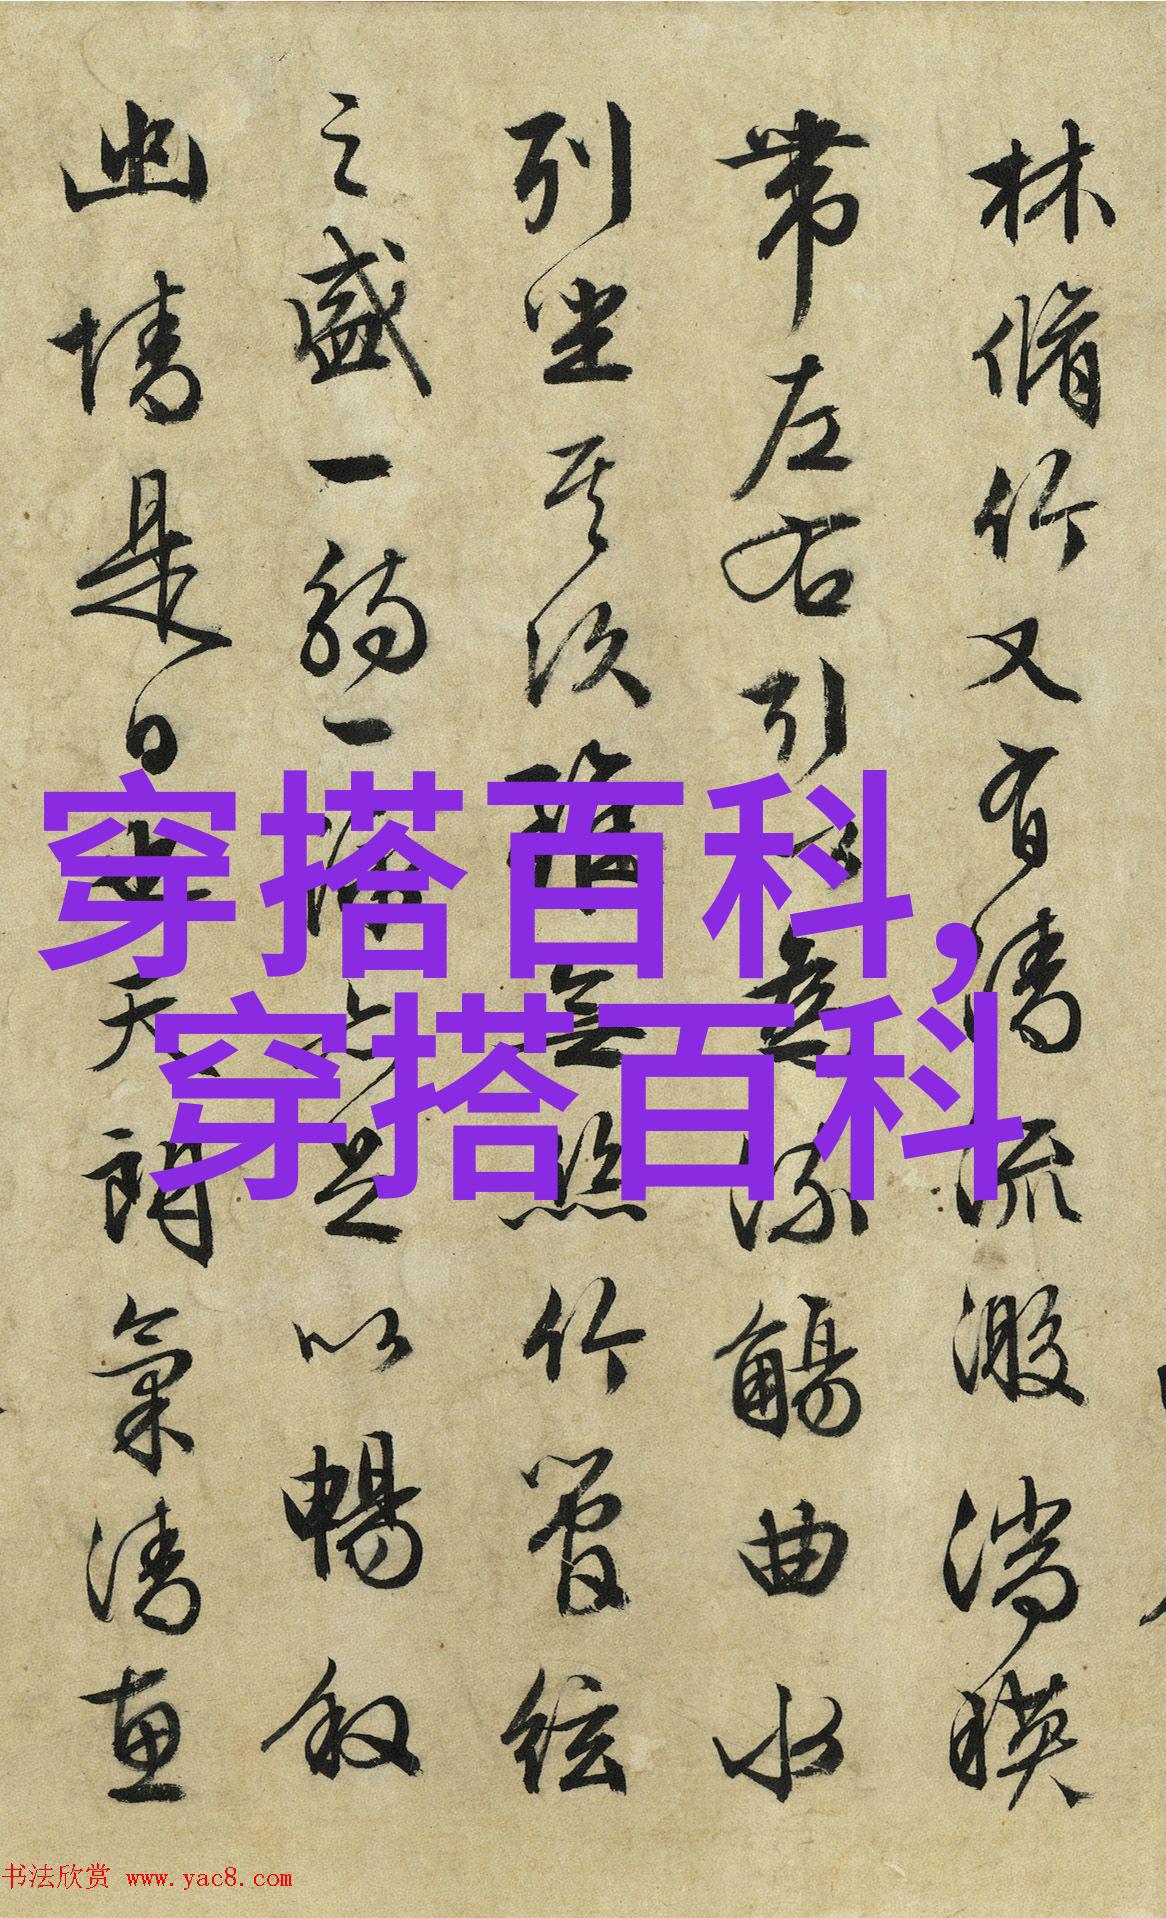 林脩竹又有清流激湍暎
帶左右引以為流觴曲水
列坐其次雖無絲竹管絃
之盛一觴一詠亦足以暢敘
幽情是日也天朗氣清惠
穿搭百科,
穿搭百科
书法欣赏 www.yac8.com